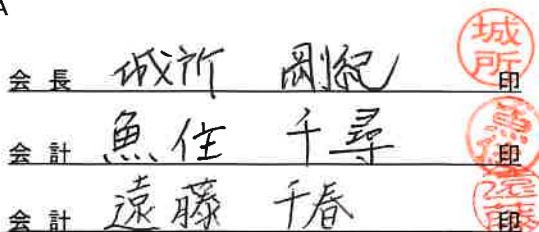 A
会長 城所 剛紀 印 城所
会計 魚住 千尋 印 魚住
会計 遠藤 千春 印 遠藤